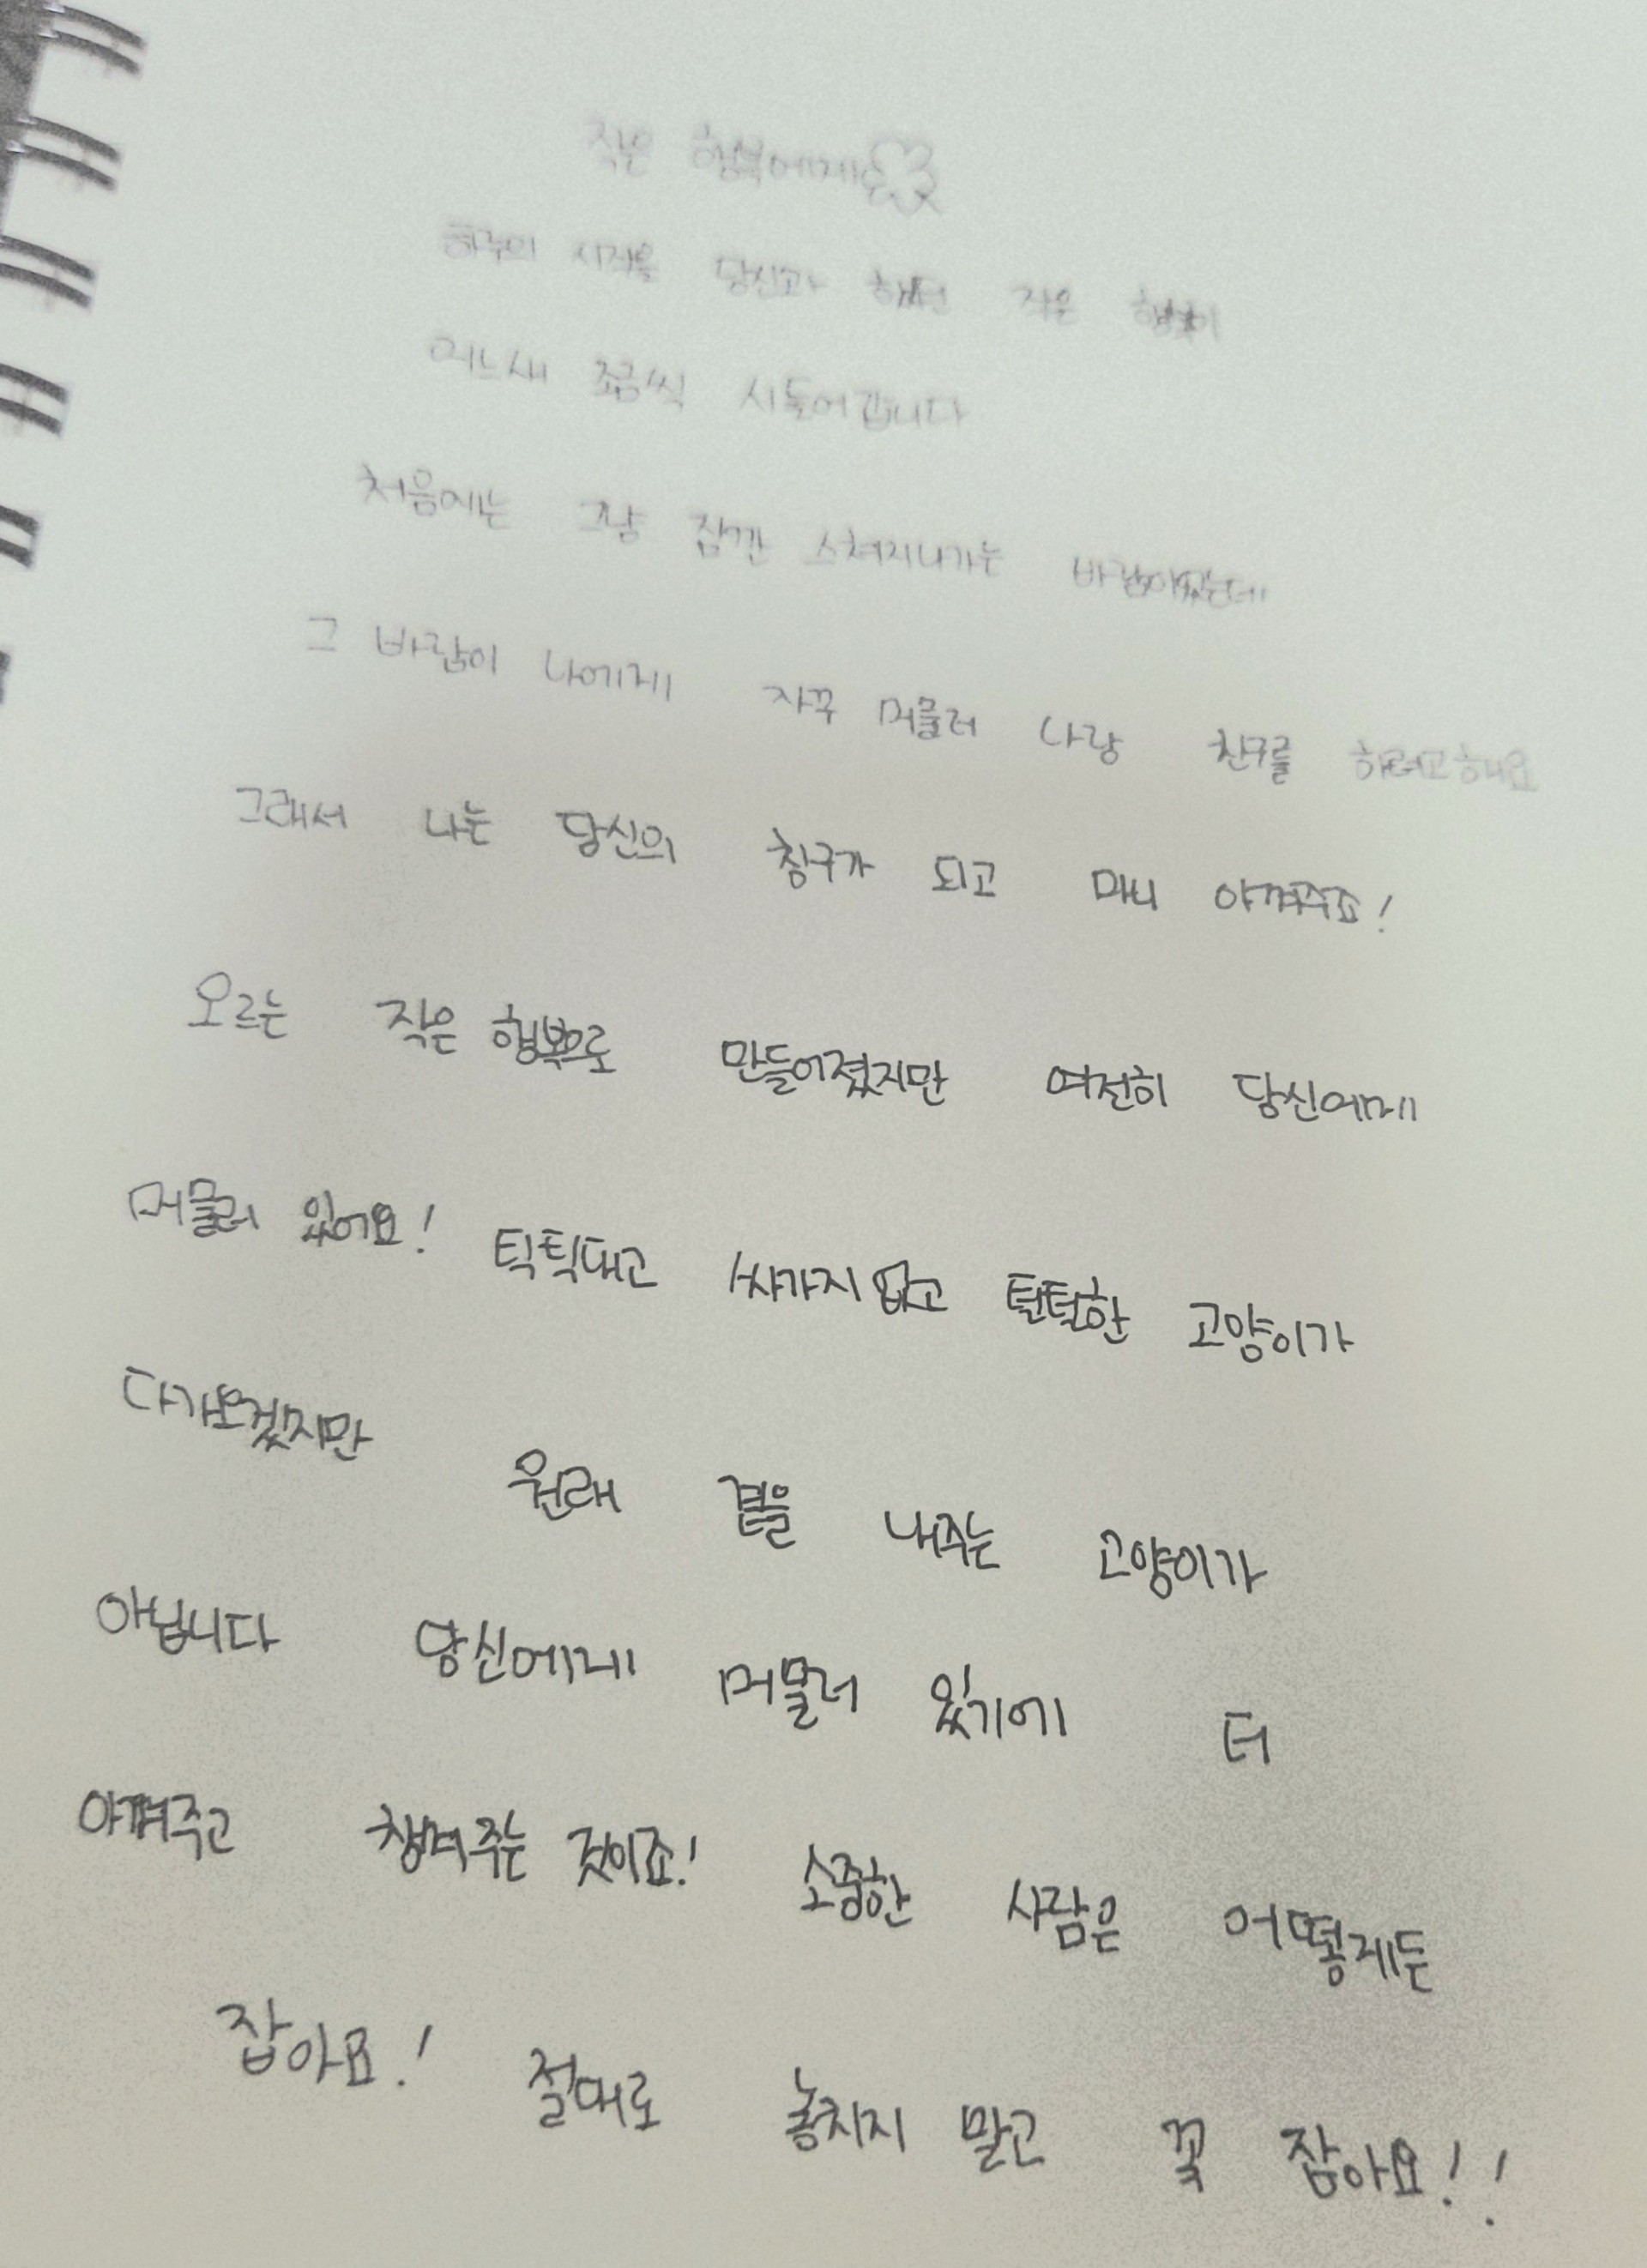 작은 행복에게
하루의 시작을 당신과 했던 작은 행복이
어느새 조금씩 시들어갑니다
처음에는 그냥 잠깐 스쳐지나가는 바람이었는데
그 바람이 나에게 자꾸 머물러 나랑 친구를 하려고해요
그래서 나는 당신의 칭구가 되고 마니 아껴주죠!
오르는 작은 행복으로 만들어졌지만 여전히 당신에게
머물러 있어요! 틱틱대고 싸가지없고 털털한 고양이가
다가오겠지만 원래 곁을 내주는 고양이가
아닙니다 당신에게 머물러 있기에 더
아껴주고 챙겨주는 것이죠! 소중한 사람은 어떻게든
잡아요! 절대로 놓치지 말고 꽃 잡아요!!